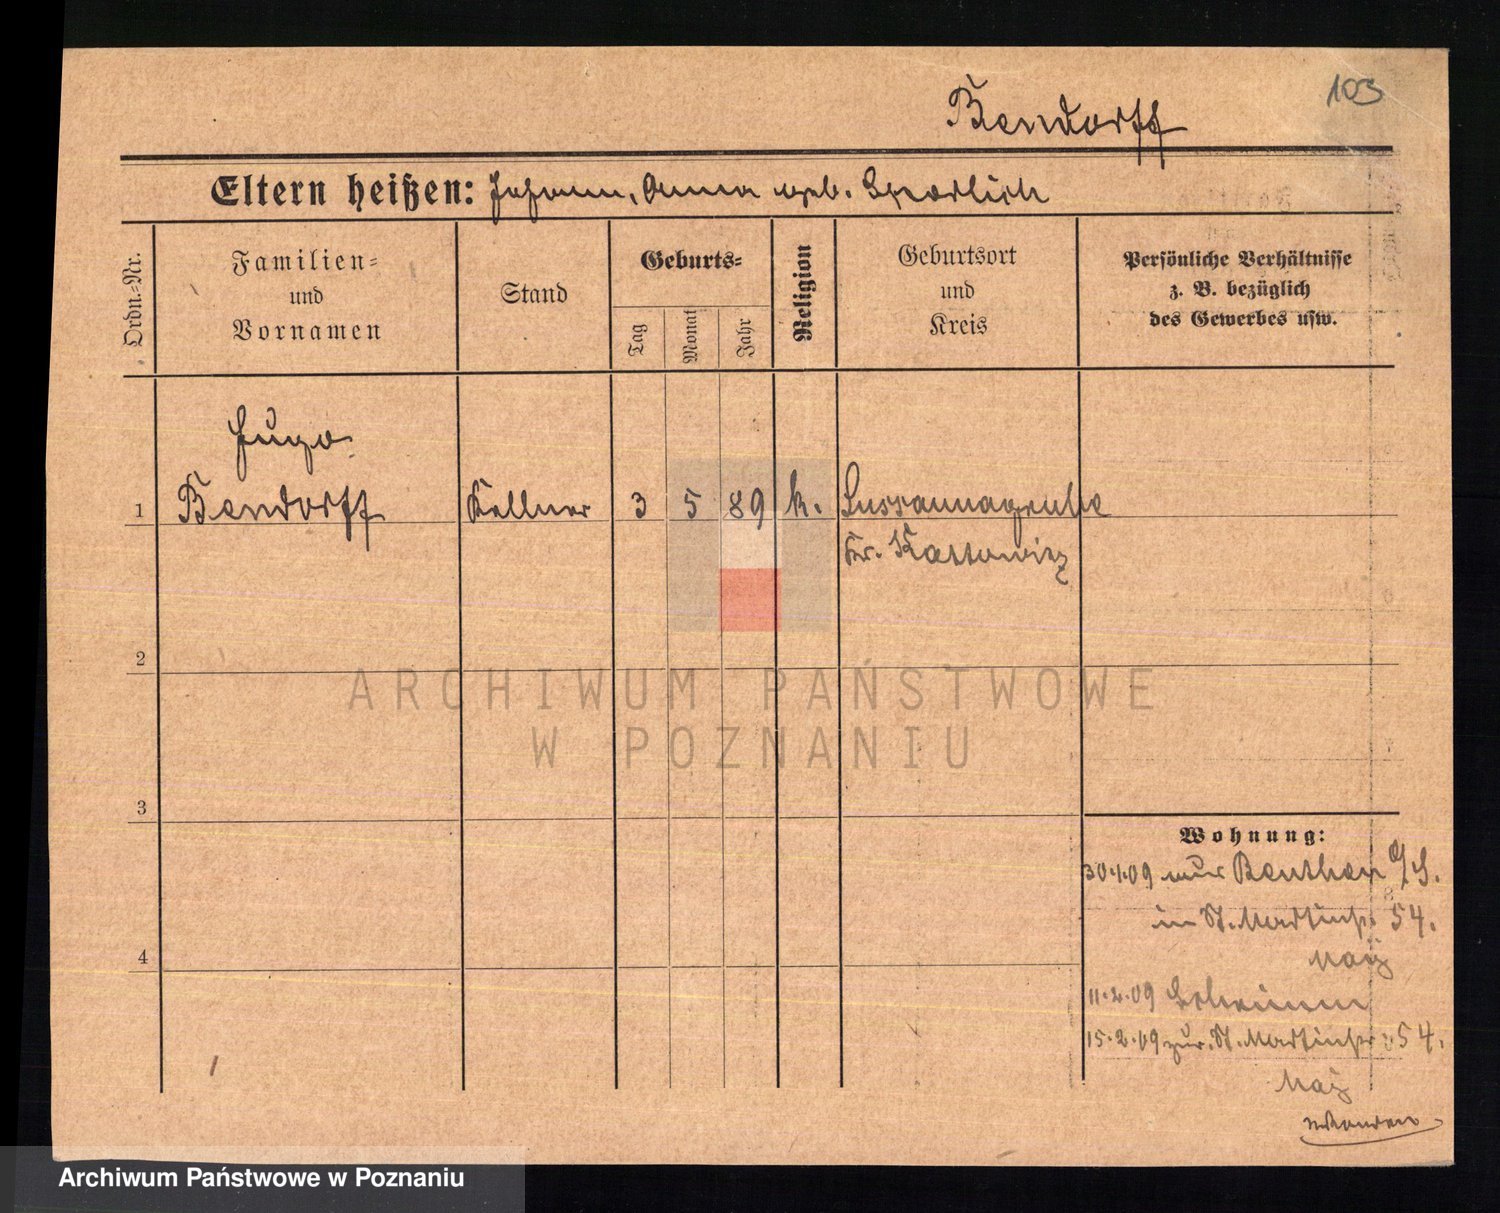 103
Bendorff
Eltern heißen: Johann, Anna geb. Sparlich
Ordn.=Nr.
Familien=
und
Vornamen
Stand
Geburts=
Tag
Monat
Jahr
Religion
Geburtsort
und
Kreis
Persönliche Verhältnisse
z. B. bezüglich
des Gewerbes usw.
Hugo
1 Bendorff Kellner 3 5 89 k. Sussannagrube
Kr. Kattowitz
2
3
4
Wohnung:
30.1.09 aus Beuthen O/S.
in St. Martinstr. 54.
11.2.09
15.2.09 zur. St. Martinstr. 54.
ARCHIWUM PAŃSTWOWE
W POZNANIU
Archiwum Państwowe w Poznaniu